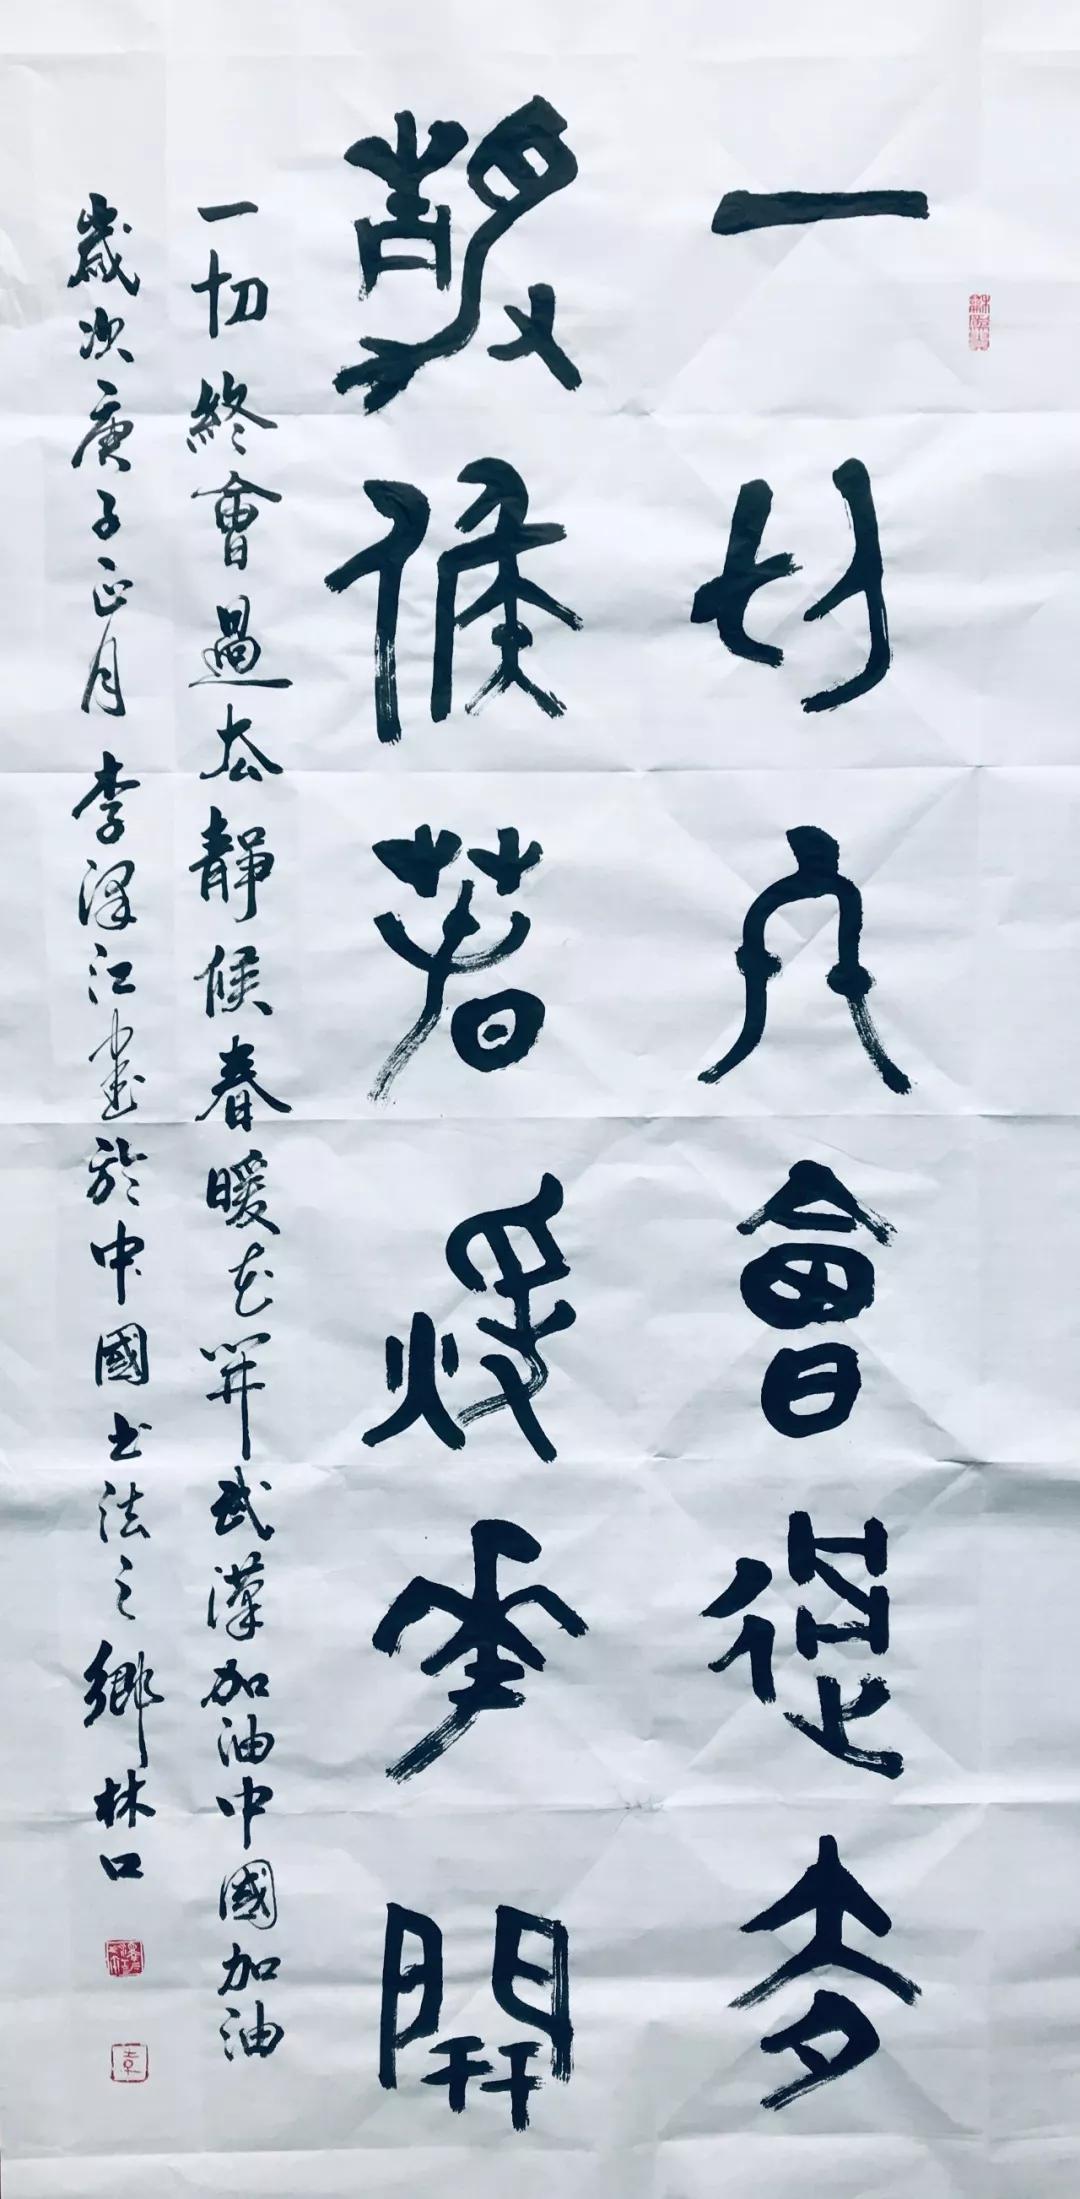 一切終會過去
靜候春暖花開
一切終會過去靜候春暖花開武漢加油中國加油
歲次庚子正月李澤江書於中國書法之鄉林口